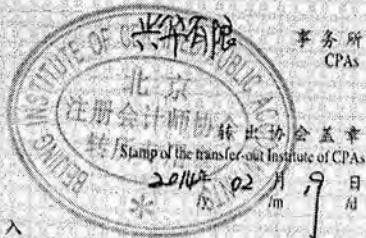 兴华有限
事务所
CPAs
BEIJING INSTITUTE OF CERTIFIED PUBLIC ACCOUNTANTS
北京
注册会计师协会
转出协会盖章
Stamp of the transfer-out Institute of CPAs
2014年 02 月 19 日
/y /m /d
入